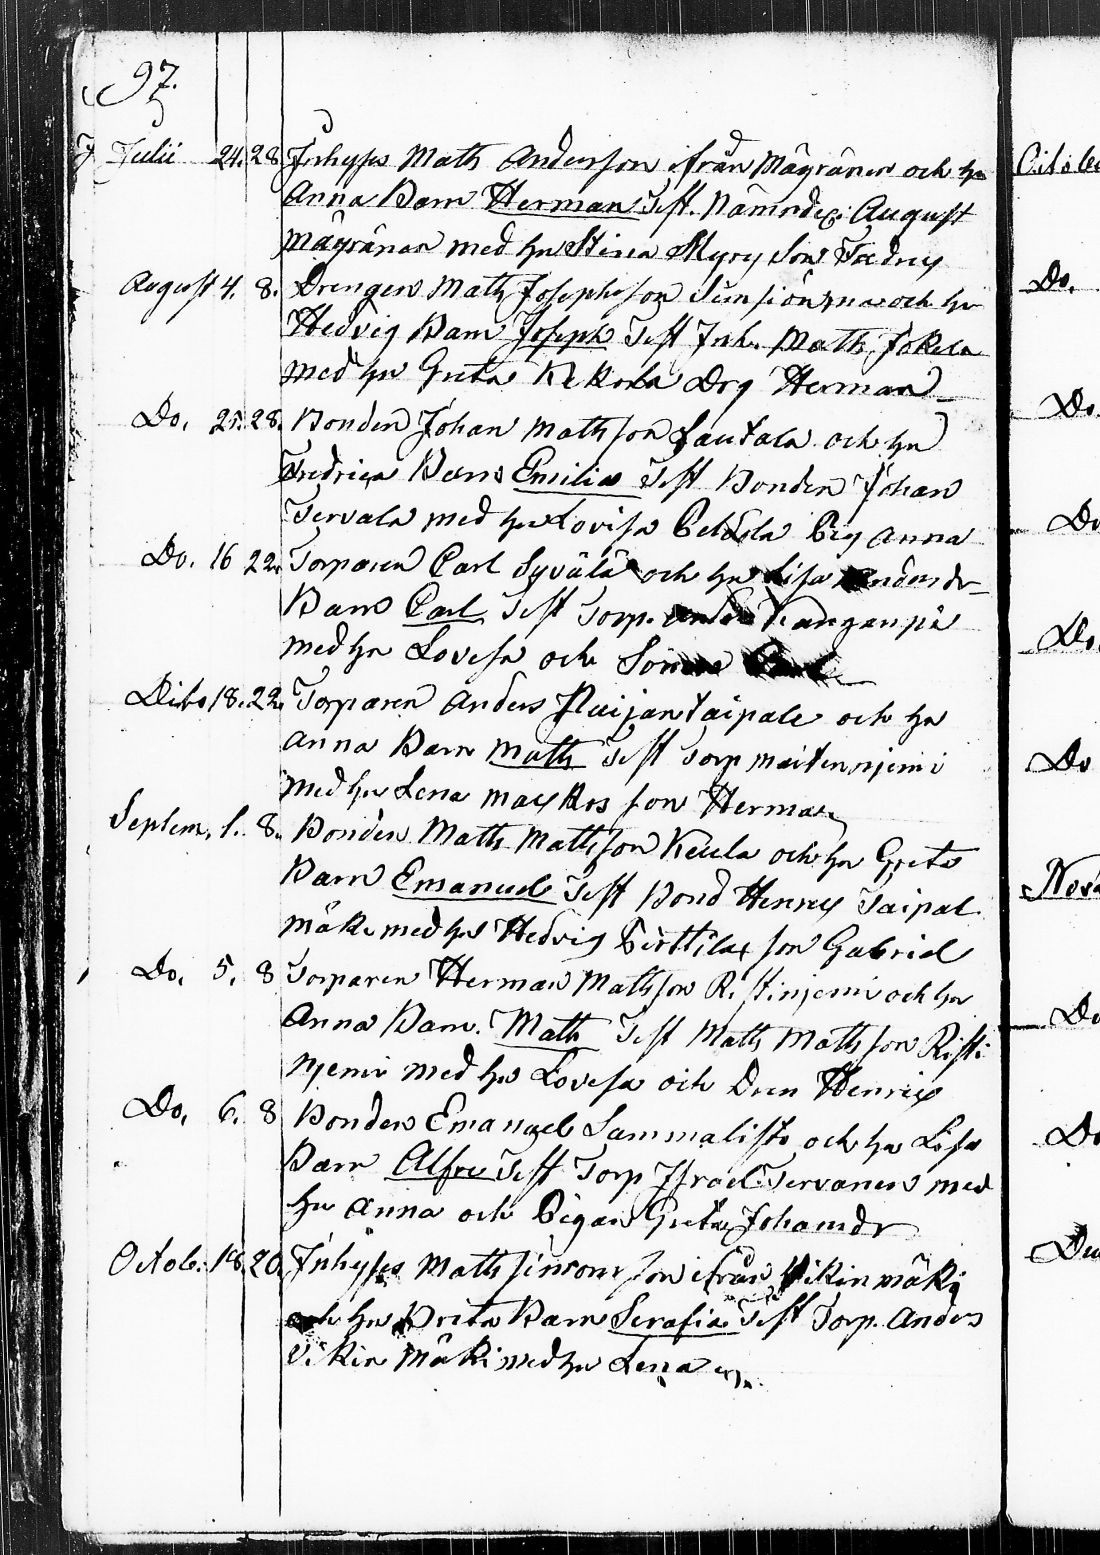 97.
Julii 24. 28. Inhyses Math Andersson ifrån Mägränen och hu
Anna Barn Herman Test. Nämndem: August
Mägränen med hu Stina Myry Son Fredrey
August 4. 8. Drengen Math Josephsson och hu
Hedvig Barn Joseph Test Inh. Math Jokela
med hu Greta Kekola Drg Herman
Do. 25. 28. Bonden Johan Mathsson Lautala och hu
Fredrica Barn Emilia Test Bonden Johan
Tervala med hu Lovisa Peldola Pig Anna
Do. 16 22. Torparen Carl Syvälä och hu Lisa Andersdr
Barn Carl Test Torp. Kanganpä
med hu Lovisa och Sonen
Dito 18. 22. Torparen Anders Ruijantaipale och hu
Anna Barn Math Test Torp Maitennjemi
med hu Lena son Herman
Septem. 1. 8. Bonden Math Mathsson Keula och hu Greta
Barn Emanuel Test Bond Henrey Taipal
mäki med hu Hedvig Perttila son Gabriel
Do. 5. 8 Torparen Herman Mathsson Ristinjemi och hu
Anna Barn. Math Test Math Mathsson Risti
njemi med hu Lovisa och Dren Henric
Do. 6. 8 Bonden Emanuel Sammalisto och hu Lisa
Barn Alfre Test Torp Israel Tervanen med
hu Anna och Pigan Greta Johansdr
Octob. 18. 20. Inhyses Math Simonsson ifrån Vikinmäki
och hu Brita Barn Serafia Test Torp. Anders
Vikin Mäki med hu Lena
Octobe
Do.
Do.
Do
Do.
Do
Nov
Do
Do
De